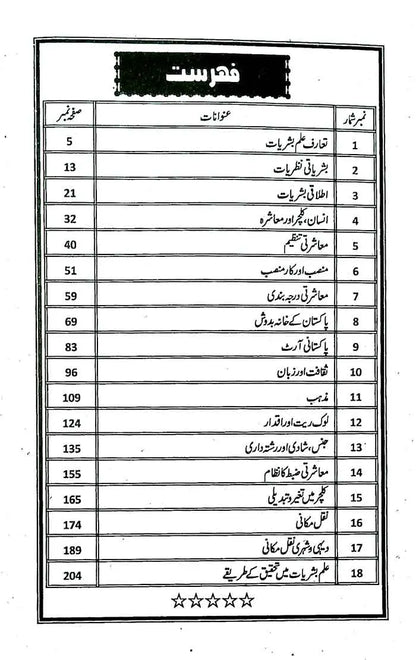 فہرست
نمبر شمار عنوانات صفحہ نمبر
1 تعارف علم بشریات 5
2 بشریاتی نظریات 13
3 اطلاقی بشریات 21
4 انسان، کلچر اور معاشرہ 32
5 معاشرتی تنظیم 40
6 منصب اور کار منصب 51
7 معاشرتی درجہ بندی 59
8 پاکستان کے خانہ بدوش 69
9 پاکستانی آرٹ 83
10 ثقافت اور زبان 96
11 مذہب 109
12 لوک ریت اور اقدار 124
13 جنس، شادی اور رشتہ داری 135
14 معاشرتی ضبط کا نظام 155
15 کلچر میں تغیر و تبدیلی 165
16 نقل مکانی 174
17 دیہی و شہری نقل مکانی 189
18 علم بشریات میں تحقیق کے طریقے 204